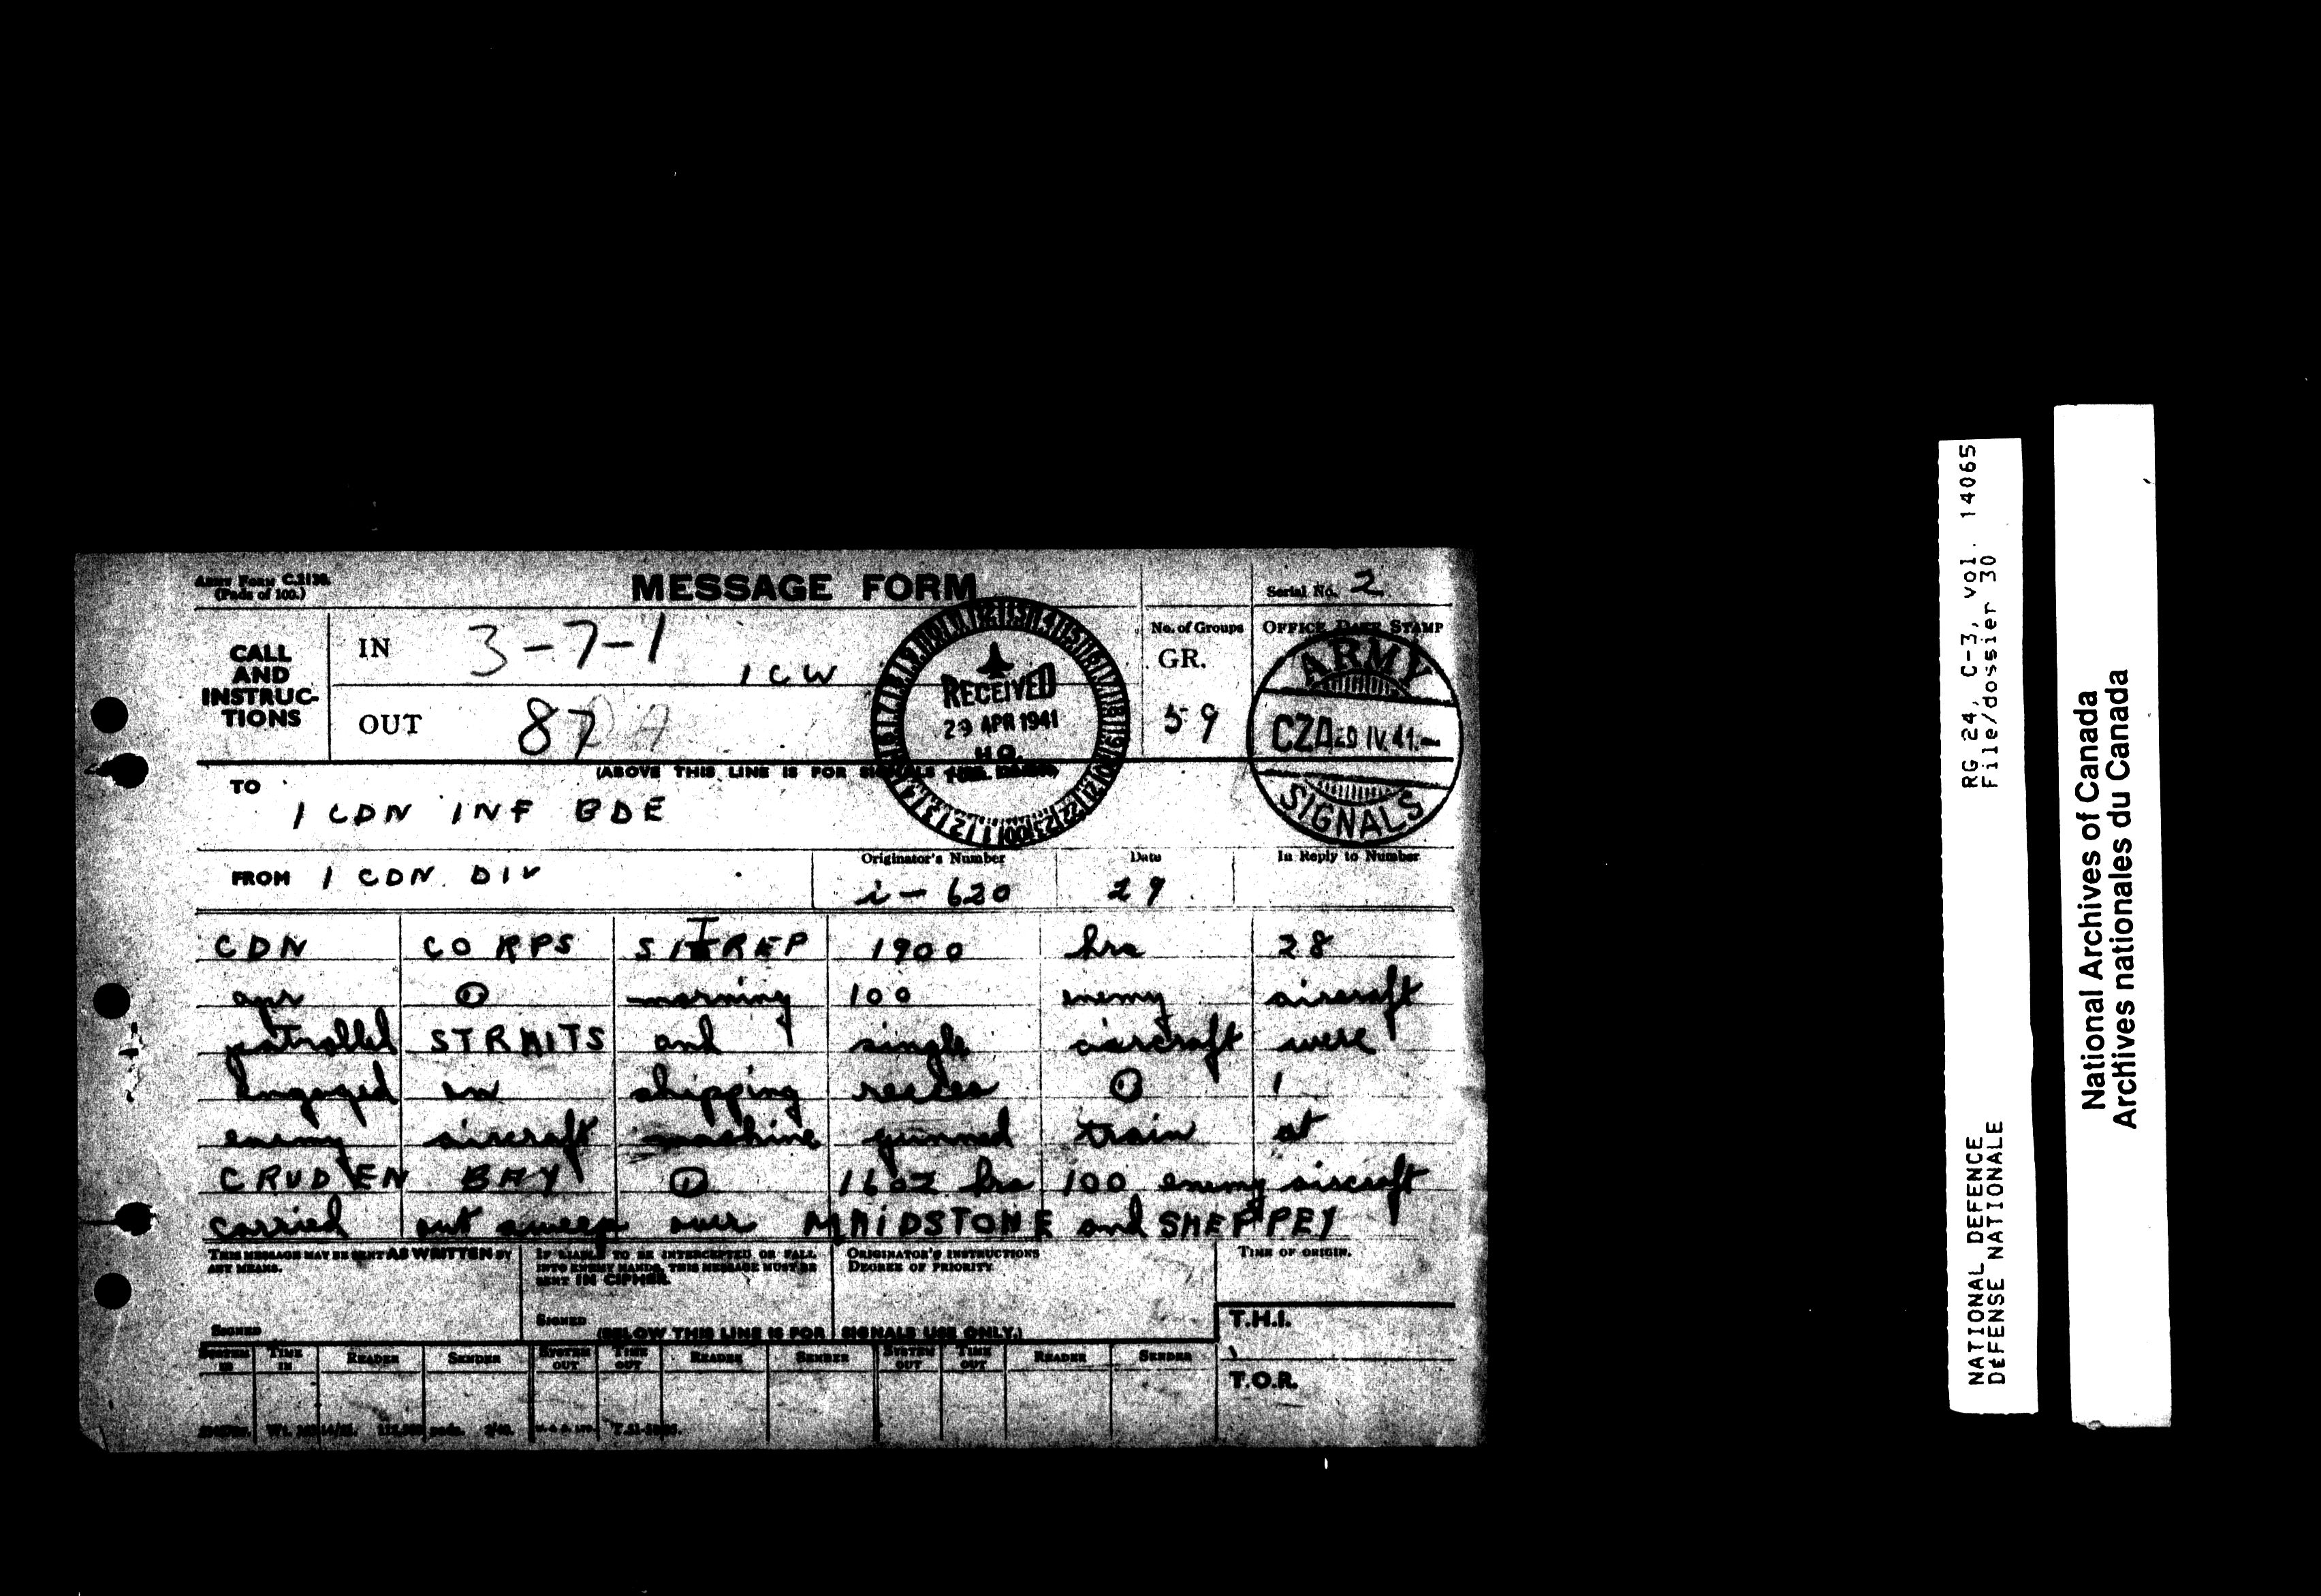 ARMY FORM C.2128.
(Pads of 100.)
MESSAGE FORM
Serial No. 2
CALL AND INSTRUC-TIONS
IN 3-7-1
1 CW
OUT 87
No. of Groups
GR.
59
OFFICE DATE STAMP
RECEIVED
29 APR 1941
H.Q.
ARMY
CZA 29 IV 41
SIGNALS
(ABOVE THIS LINE IS FOR SIGNALS
TO
1 CDN INF BDE
FROM 1 CDN DIV
Originator's Number
i - 620
Date
29
In Reply to Number
CDN CORPS SITREP 1900 hrs 28
apr ① morning 100 enemy aircraft
patrolled STRAITS and single aircraft were
engaged in shipping recces ① 1
enemy aircraft machine gunned train at
CRUDEN BAY ① 1602 hrs 100 enemy aircraft
carried out sweep over MAIDSTONE and SHEPPEY
THIS MESSAGE MAY BE SENT AS WRITTEN BY ANY MEANS.
SIGNED
IF LIABLE TO BE INTERCEPTED OR FALL INTO ENEMY HANDS, THIS MESSAGE MUST BE SENT IN CIPHER.
SIGNED
ORIGINATOR'S INSTRUCTIONS
DEGREE OF PRIORITY
TIME OF ORIGIN.
T.H.I.
T.O.R.
(BELOW THIS LINE IS FOR SIGNALS USE ONLY.)
SYSTEM IN TIME IN READER SENDER SYSTEM OUT TIME OUT READER SENDER SYSTEM OUT TIME OUT READER SENDER
NATIONAL DEFENCE RG 24, C-3, vol. 14065
DEFENSE NATIONALE File/dossier 30
National Archives of Canada
Archives nationales du Canada